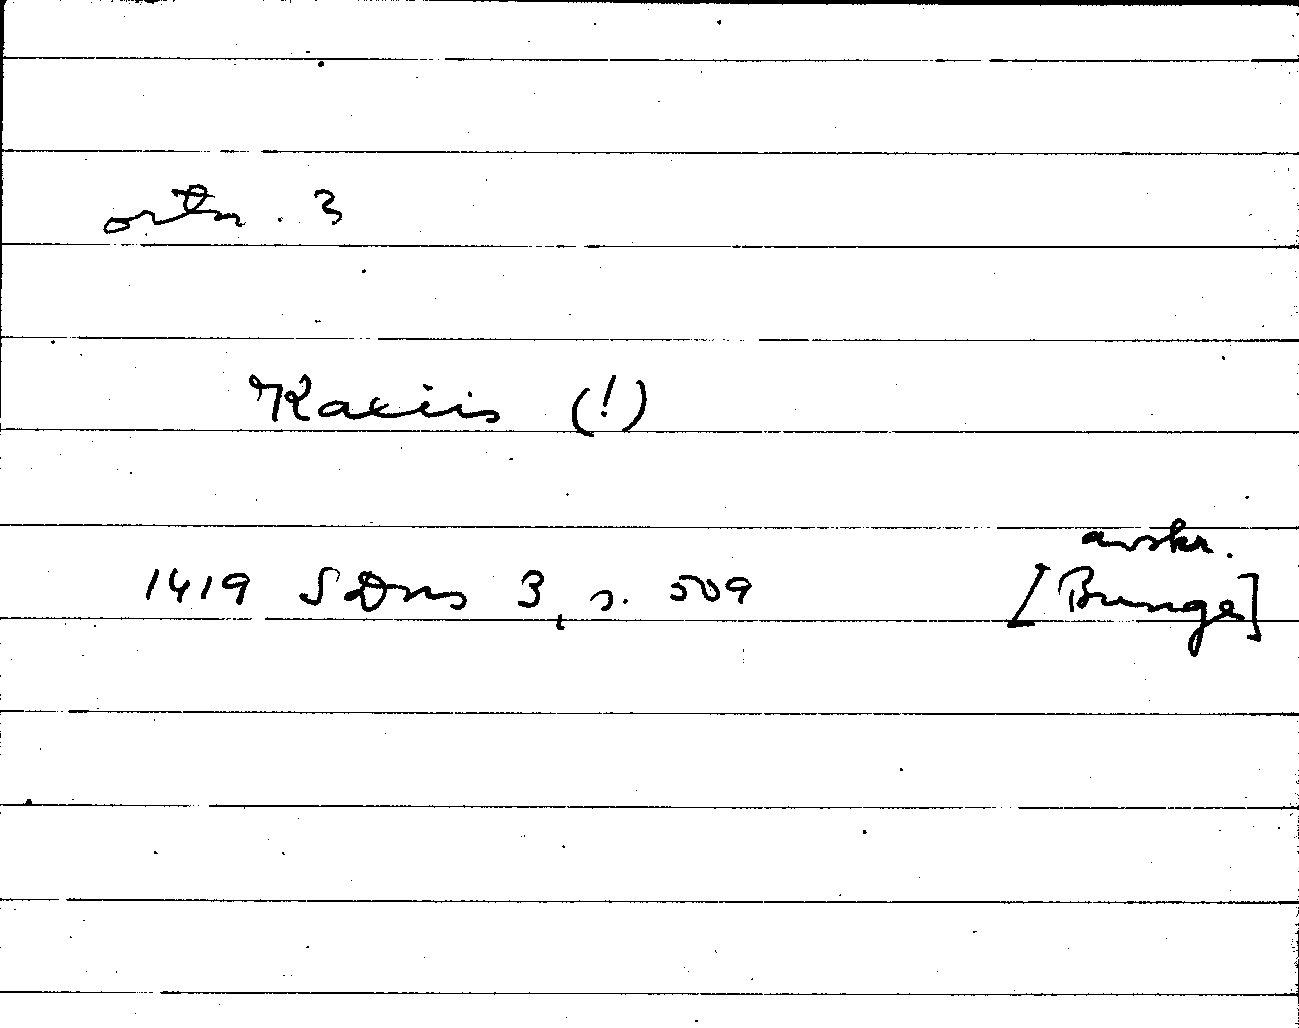 ortn. 3
Kaciis (!)
avskr.
1419 SDns 3, s. 509 [Bunge]